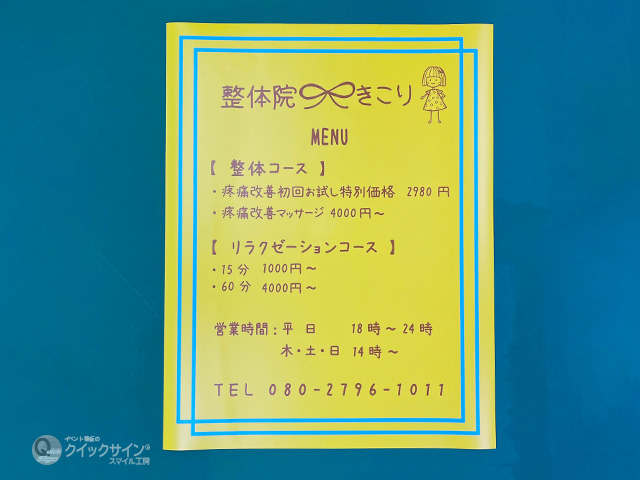 整体院 きこり
MENU
【 整体コース 】
・疼痛改善初回お試し特別価格 2980円
・疼痛改善マッサージ 4000円～
【 リラクゼーションコース 】
・15分 1000円～
・60分 4000円～
営業時間:平 日 18時～24時
木・土・日 14時～
TEL 080-2796-1011
イベント看板の
クイックサイン®
スマイル工房